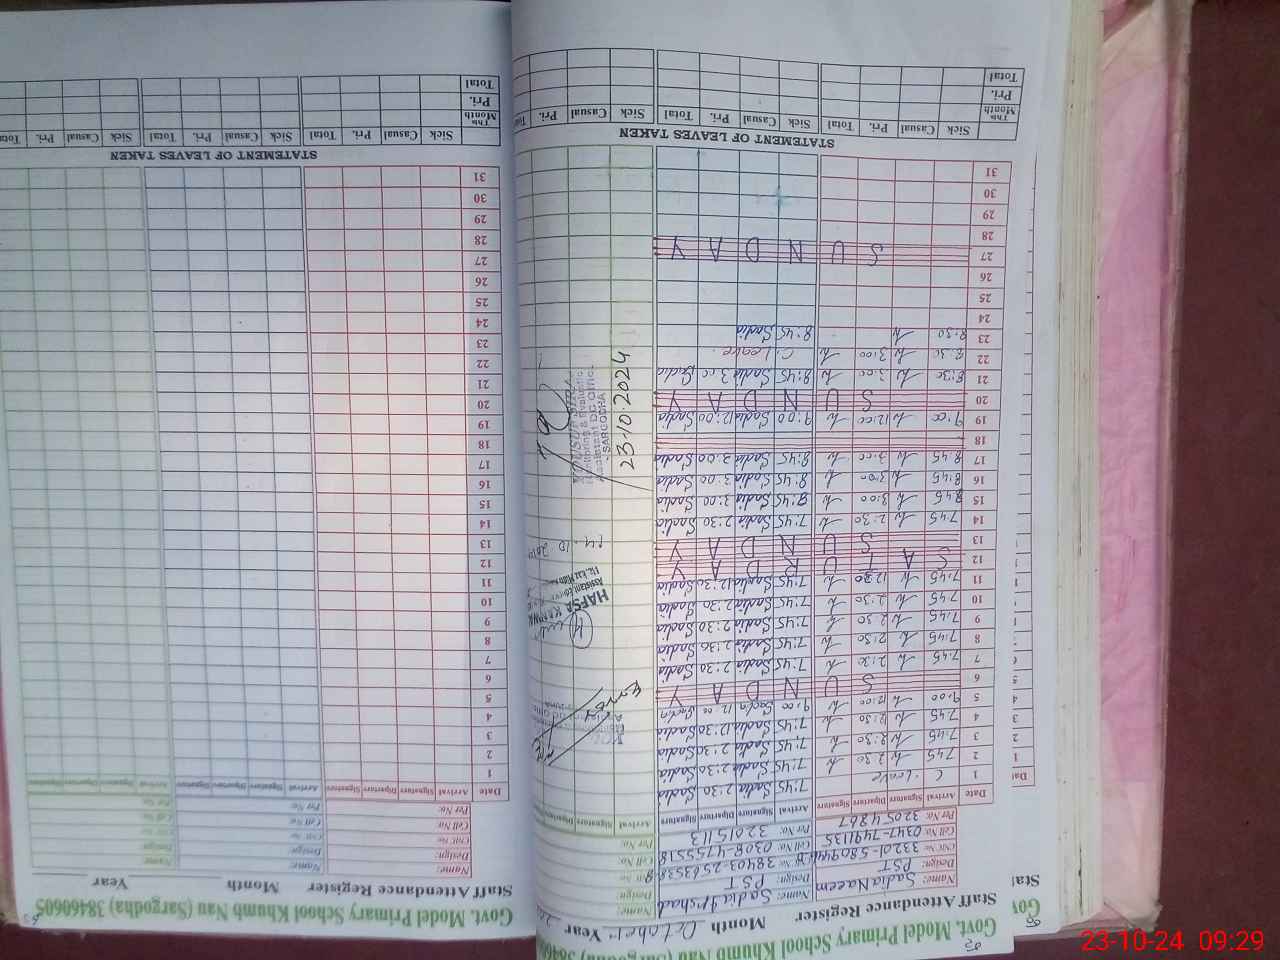 Govt. Model Primary School Khumb Nau (Sargodha)
Staff Attendance Register Month October Year
Name: Sadia Naeem Name: Sadia Irshad Name:
Design: PST Design: PST Design:
Cell No: 0347-7491135 Cell No: 0308-4755518 Cell No:
Per No: 32054867 Per No: 32015113 Per No:
Date Arrival Signature Diparture Signature Arrival Signature Diparture Signature Arrival Signature Diparture Signature
1 C. Leave 7:45 Sadia 2:30 Sadia
2 7:45 2:30 7:45 Sadia 2:30 Sadia
3 7:45 2:30 7:45 Sadia 2:30 Sadia
4 7:45 12:30 7:45 Sadia 12:30 Sadia
5 9:00 12:00 9:00 Sadia 12:00 Sadia
6 S U N D A Y
7 7:45 2:30 7:45 Sadia 2:30 Sadia
8 7:45 2:30 7:45 Sadia 2:30 Sadia
9 7:45 2:30 7:45 Sadia 2:30 Sadia
10 7:45 2:30 7:45 Sadia 2:30 Sadia
11 7:45 12:30 7:45 Sadia 12:30 Sadia
12 S A T U R D A Y
13 S U N D A Y
14 7:45 2:30 7:45 Sadia 2:30 Sadia
15 8:45 3:00 8:45 Sadia 3:00 Sadia
16 8:45 3:00 8:45 Sadia 3:00 Sadia
17 8:45 3:00 8:45 Sadia 3:00 Sadia
18
19 9:00 12:00 9:00 Sadia 12:00 Sadia
20 S U N D A Y
21 8:30 3:00 8:45 Sadia 3:00 Sadia
22 8:30 3:00 C. Leave
23 8:30 8:45 Sadia
24
25
26
27 S U N D A Y
28
29
30
31
HAFSA
14.10.2024
SARGODHA
23.10.2024
STATEMENT OF LEAVES TAKEN
This Month Sick Casual Pri. Total Sick Casual Pri. Total Sick Casual Pri. Total
Pri.
Total
Govt. Model Primary School Khumb Nau (Sargodha) 38460605
Staff Attendance Register Month Year
Name: Name: Name:
Design: Design: Design:
CNIC No: CNIC No: CNIC No:
Cell No: Cell No: Cell No:
Per No: Per No: Per No:
Date Arrival Signature Diparture Signature Arrival Signature Diparture Signature Arrival Signature Diparture Signature
1
2
3
4
5
6
7
8
9
10
11
12
13
14
15
16
17
18
19
20
21
22
23
24
25
26
27
28
29
30
31
STATEMENT OF LEAVES TAKEN
This Month Sick Casual Pri. Total Sick Casual Pri. Total Sick Casual Pri. Total
Pri.
Total
23-10-24 09:29